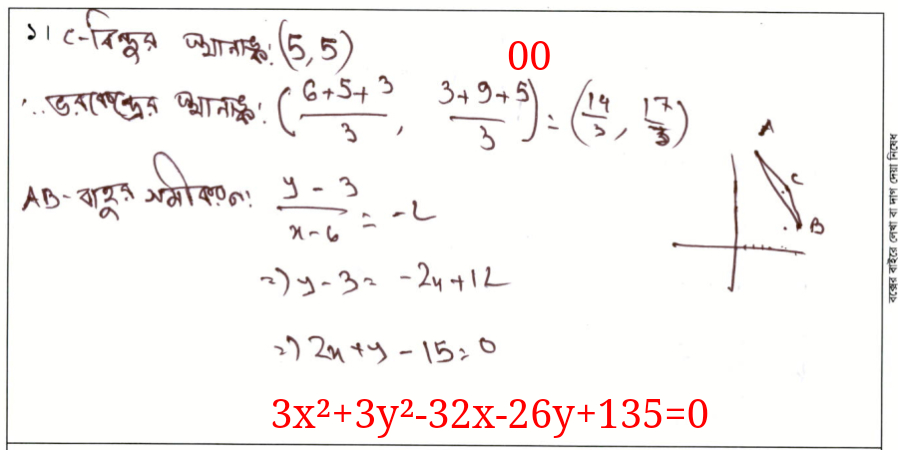 ১। C-বিন্দুর স্থানাঙ্ক: (5, 5)
00
∴ ভরকেন্দ্রের স্থানাঙ্ক: ( (6+5+3)/3 , (3+9+5)/3 ) = (14/3, 17/3)
A
C
B
AB-বাহুর সমীকরণ: (y - 3)/(x-6) = -2
=) y - 3 = -2x + 12
=) 2x + y - 15 = 0
3x²+3y²-32x-26y+135=0
বক্সের বাইরে লেখা বা দাগ দেয়া নিষেধ